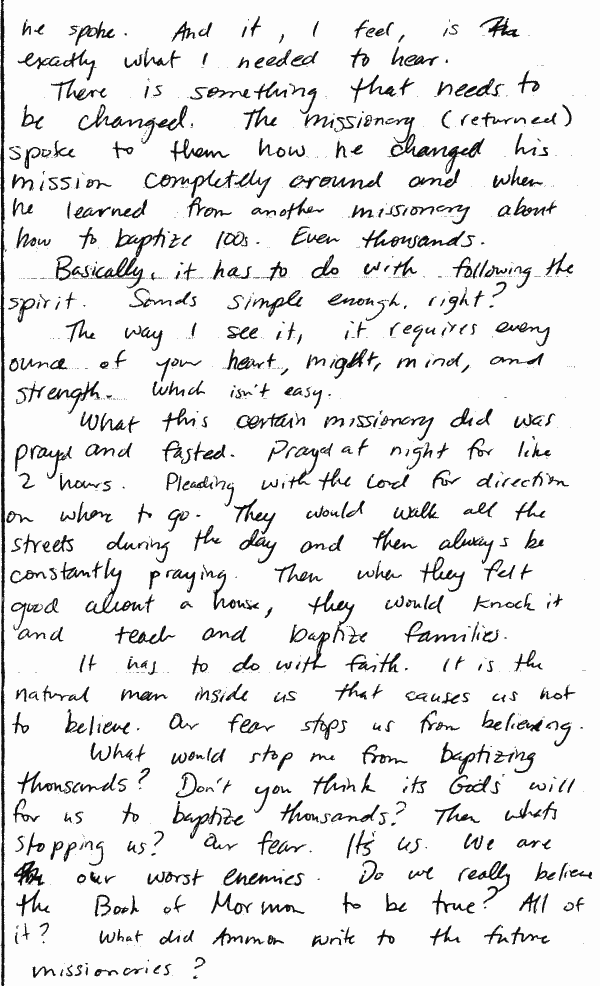 he spoke. And it, I feel, is
exactly what I needed to hear.
There is something that needs to
be changed. The missionary (returned)
spoke to them how he changed his
mission completely around and when
he learned from another missionary about
how to baptize 100s. Even thousands.
Basically, it has to do with following the
spirit. Sounds simple enough, right?
The way I see it, it requires every
ounce of your heart, might, mind, and
strength. Which isn't easy.
What this certain missionary did was
prayed and fasted. Prayed at night for like
2 hours. Pleading with the Lord for direction
on where to go. They would walk all the
streets during the day and then always be
constantly praying. Then when they felt
good about a house, they would knock it
and teach and baptize families.
It has to do with faith. It is the
natural man inside us that causes us not
to believe. Our fear stops us from believing.
What would stop me from baptizing
thousands? Don't you think its God's will
for us to baptize thousands? Then whats
stopping us? Our fear. It's us. We are
our worst enemies. Do we really believe
the Book of Mormon to be true? All of
it? What did Ammon write to the future
missionaries?